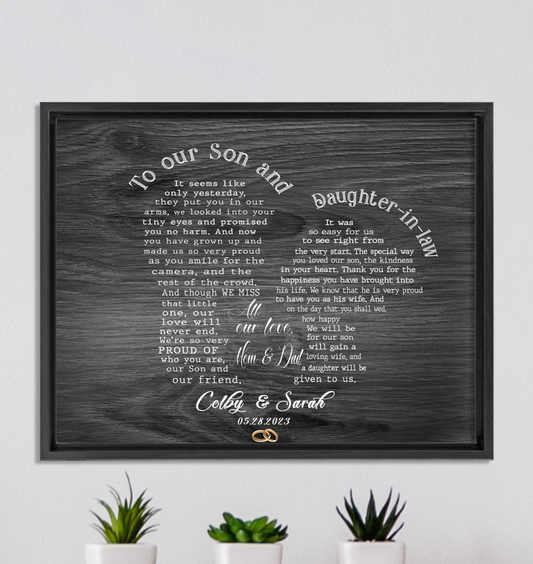 To our Son and
It seems like
only yesterday,
they put you in our
arms, we looked into your
tiny eyes and promised
you no harm. And now
you have grown up and
made us so very proud
as you smile for the
camera, and the
rest of the crowd.
And though WE MISS
that little
one, our
love will
never end.
We're so very
PROUD OF
who you are,
our Son and
our friend.
Daughter-in-law
It was
so easy for us
to see right from
the very start. The special way
you loved our son, the kindness
in your heart. Thank you for the
happiness you have brought into
his life. We know that he is very proud
to have you as his wife. And
on the day that you shall wed,
how happy
We will be
for our son
will gain a
loving wife, and
a daughter will be
given to us.
All
our love,
Mom & Dad
Colby & Sarah
05.28.2023